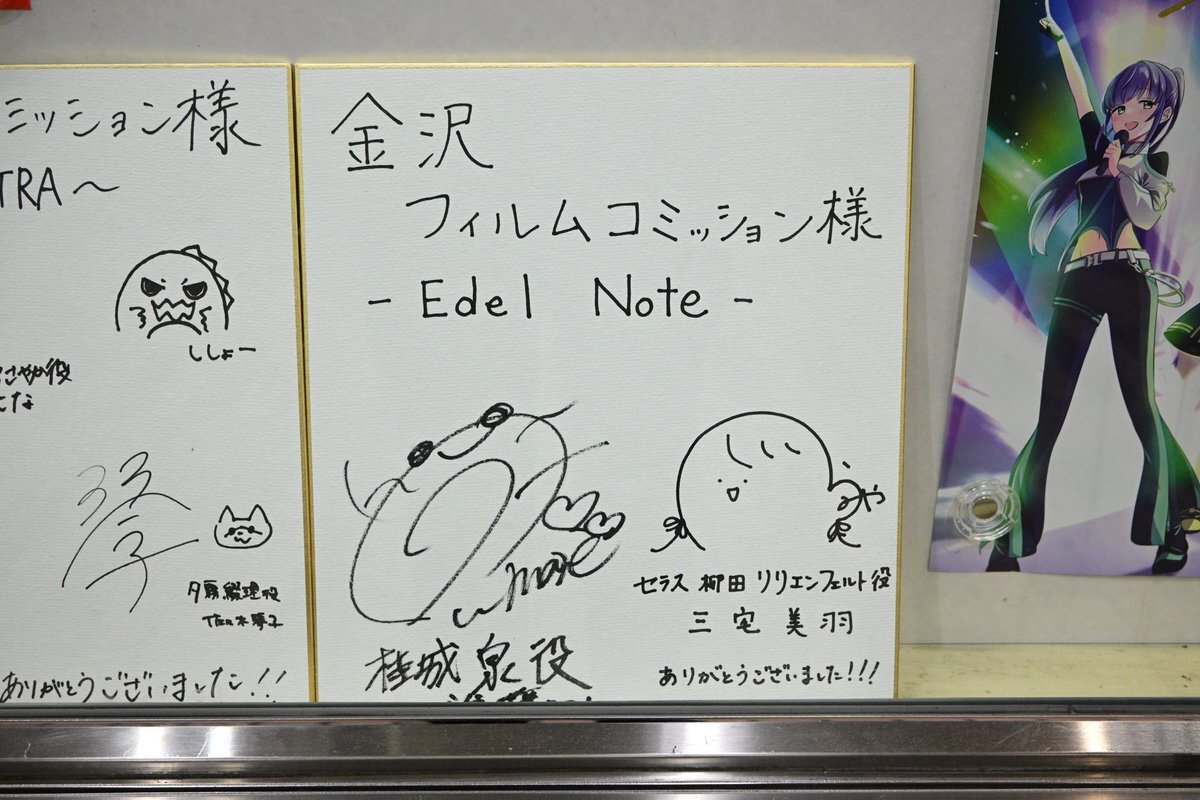 ミッション様
TRA〜
ししょー
さやか役
な
夕霧綴理役
佐々木琴子
ありがとうございました!!
金沢
フィルムコミッション様
- Edel Note -
桂城泉役
みや
セラス 柳田 リリエンフェルト役
三宅美羽
ありがとうございました!!!